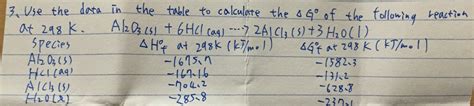 3. Use the data in the table to calculate the ΔG° of the following reaction
at 298 K. Al₂O₃(s) + 6HCl(aq) ---> 2AlCl₃(s) + 3H₂O(l)
Species ΔH°f at 298K (kJ/mol) ΔG°f at 298K (kJ/mol)
Al₂O₃(s) -1675.7 -1582.3
HCl(aq) -167.16 -131.2
AlCl₃(s) -704.2 -628.8
H₂O(l) -285.8 -237.1